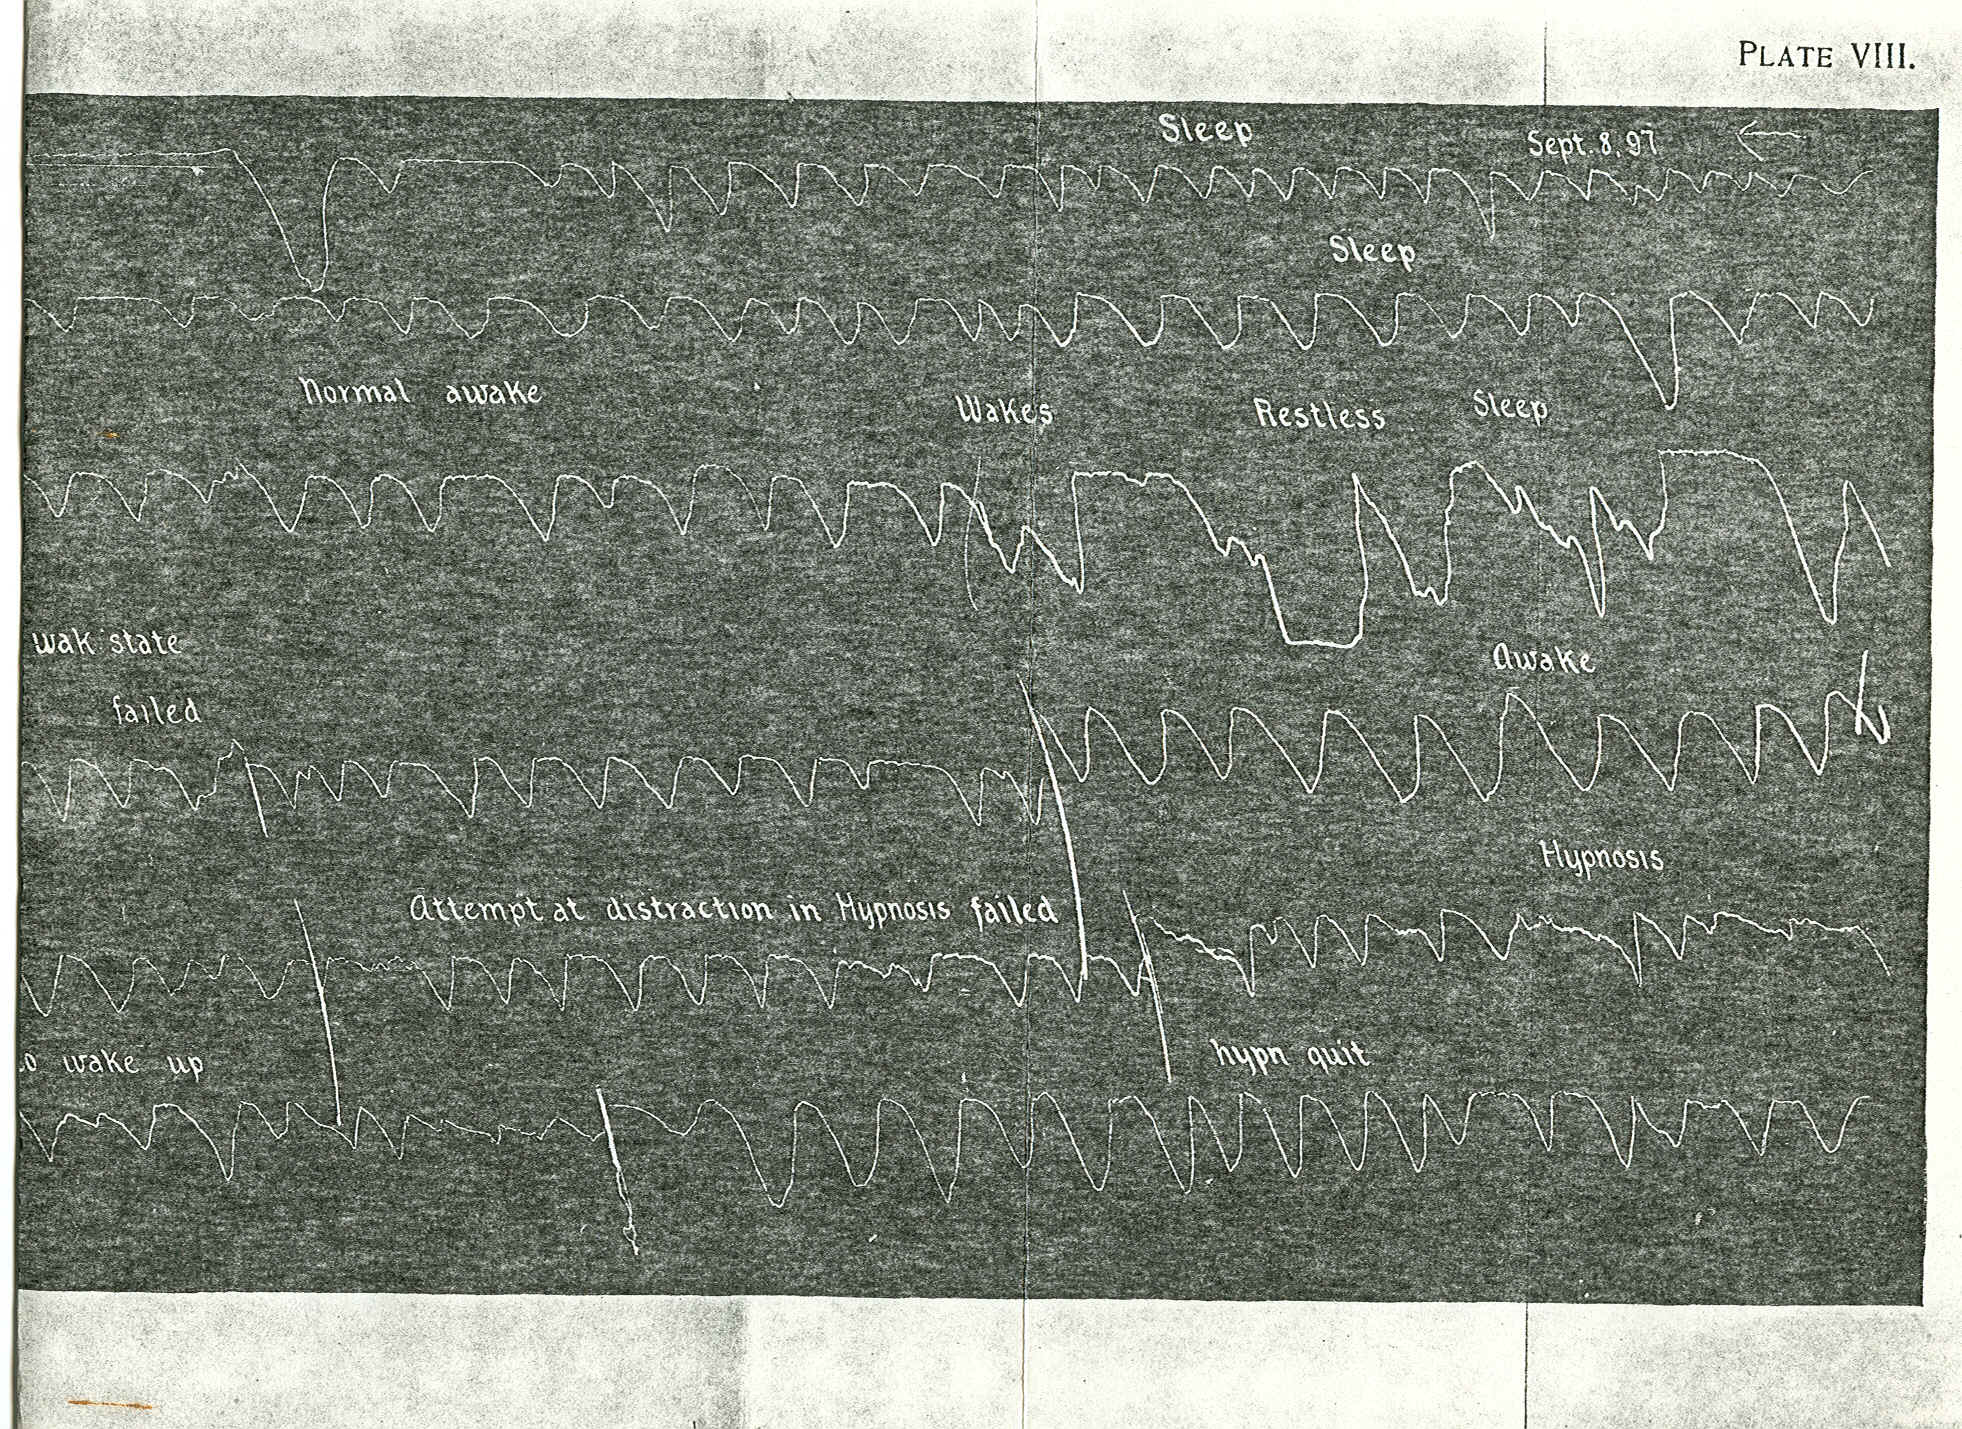 PLATE VIII.
Sleep Sept. 8, 97
Sleep
Normal awake Wakes Restless Sleep
wak state Awake
failed
Hypnosis
Attempt at distraction in Hypnosis failed
wake up hypn quit